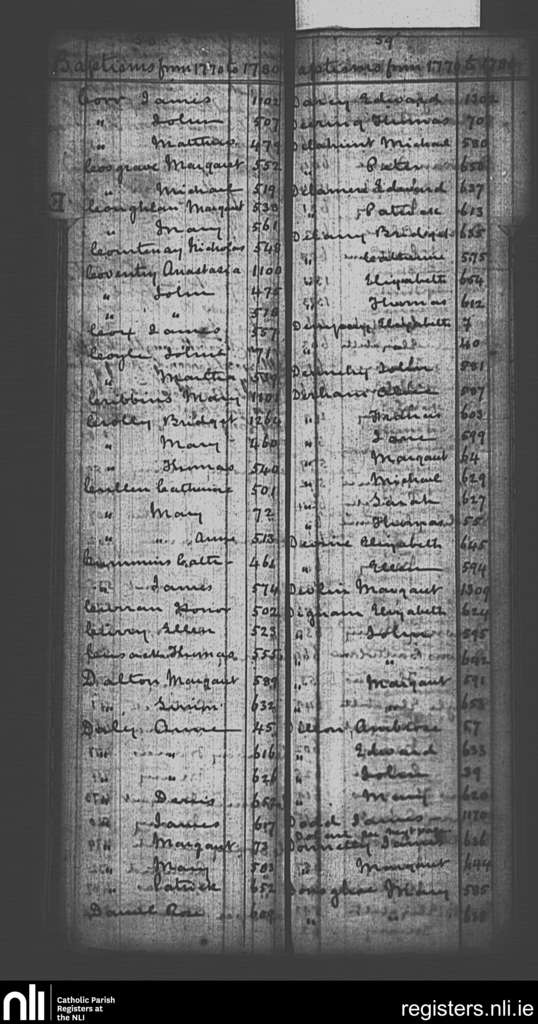 58
Baptisms from 1770 to 1780
Corr James 1102
" John 507
" Matthew 479
Cosgrave Margaret 552
" Michael 519
Coughlan Margaret 530
" Mary 561
Courtenay Nicholas 548
Coventry Anastasia 1100
" John 475
" " 518
Cox James 557
Coyle 71
" Martha
Cribbins Mary 1101
Crolly Bridget 1264
" Mary 460
" Thomas 540
Cullen Catherine 501
" Mary 72
" " Anne 513
Cummins Cathe- 466
" James 574
Curnan Honor 502
Ellen 523
Thomas 555
Dalton Margaret 589
" 632
Daly Anne 45
" " 616
" " 626
" Denis
" James 617
" Margaret 73
" Mary 503
" Patrick 652
Daniel Rose 609
59
Baptisms from 1770 to 1780
Darcy Edward 1302
Deering Thomas 70
Delahunt Michael 580
" Peter 650
Delamere Edward 637
" Patrick 613
Delany Bridget 655
" Catherine 575
" Elizabeth 604
" Thomas 612
Dempsey Elizabeth 7
" 40
John 581
Denham 587
" 603
" Jane 599
" Margaret 64
" Michael 629
" Sarah 627
" Thomas 55
Devine Elizabeth 645
" Ellen 594
Devlin Margaret 1309
Dignam Elizabeth 624
" John 595
" " 642
" Margaret 591
" 653
Dillon Ambrose 57
" Edward 633
" John 39
" Mary 620
Dodd James 1170
Donnelly James 636
" Margaret 644
Donoghoe Mary 585
" 638
nli
Catholic Parish
Registers at
the NLI
registers.nli.ie